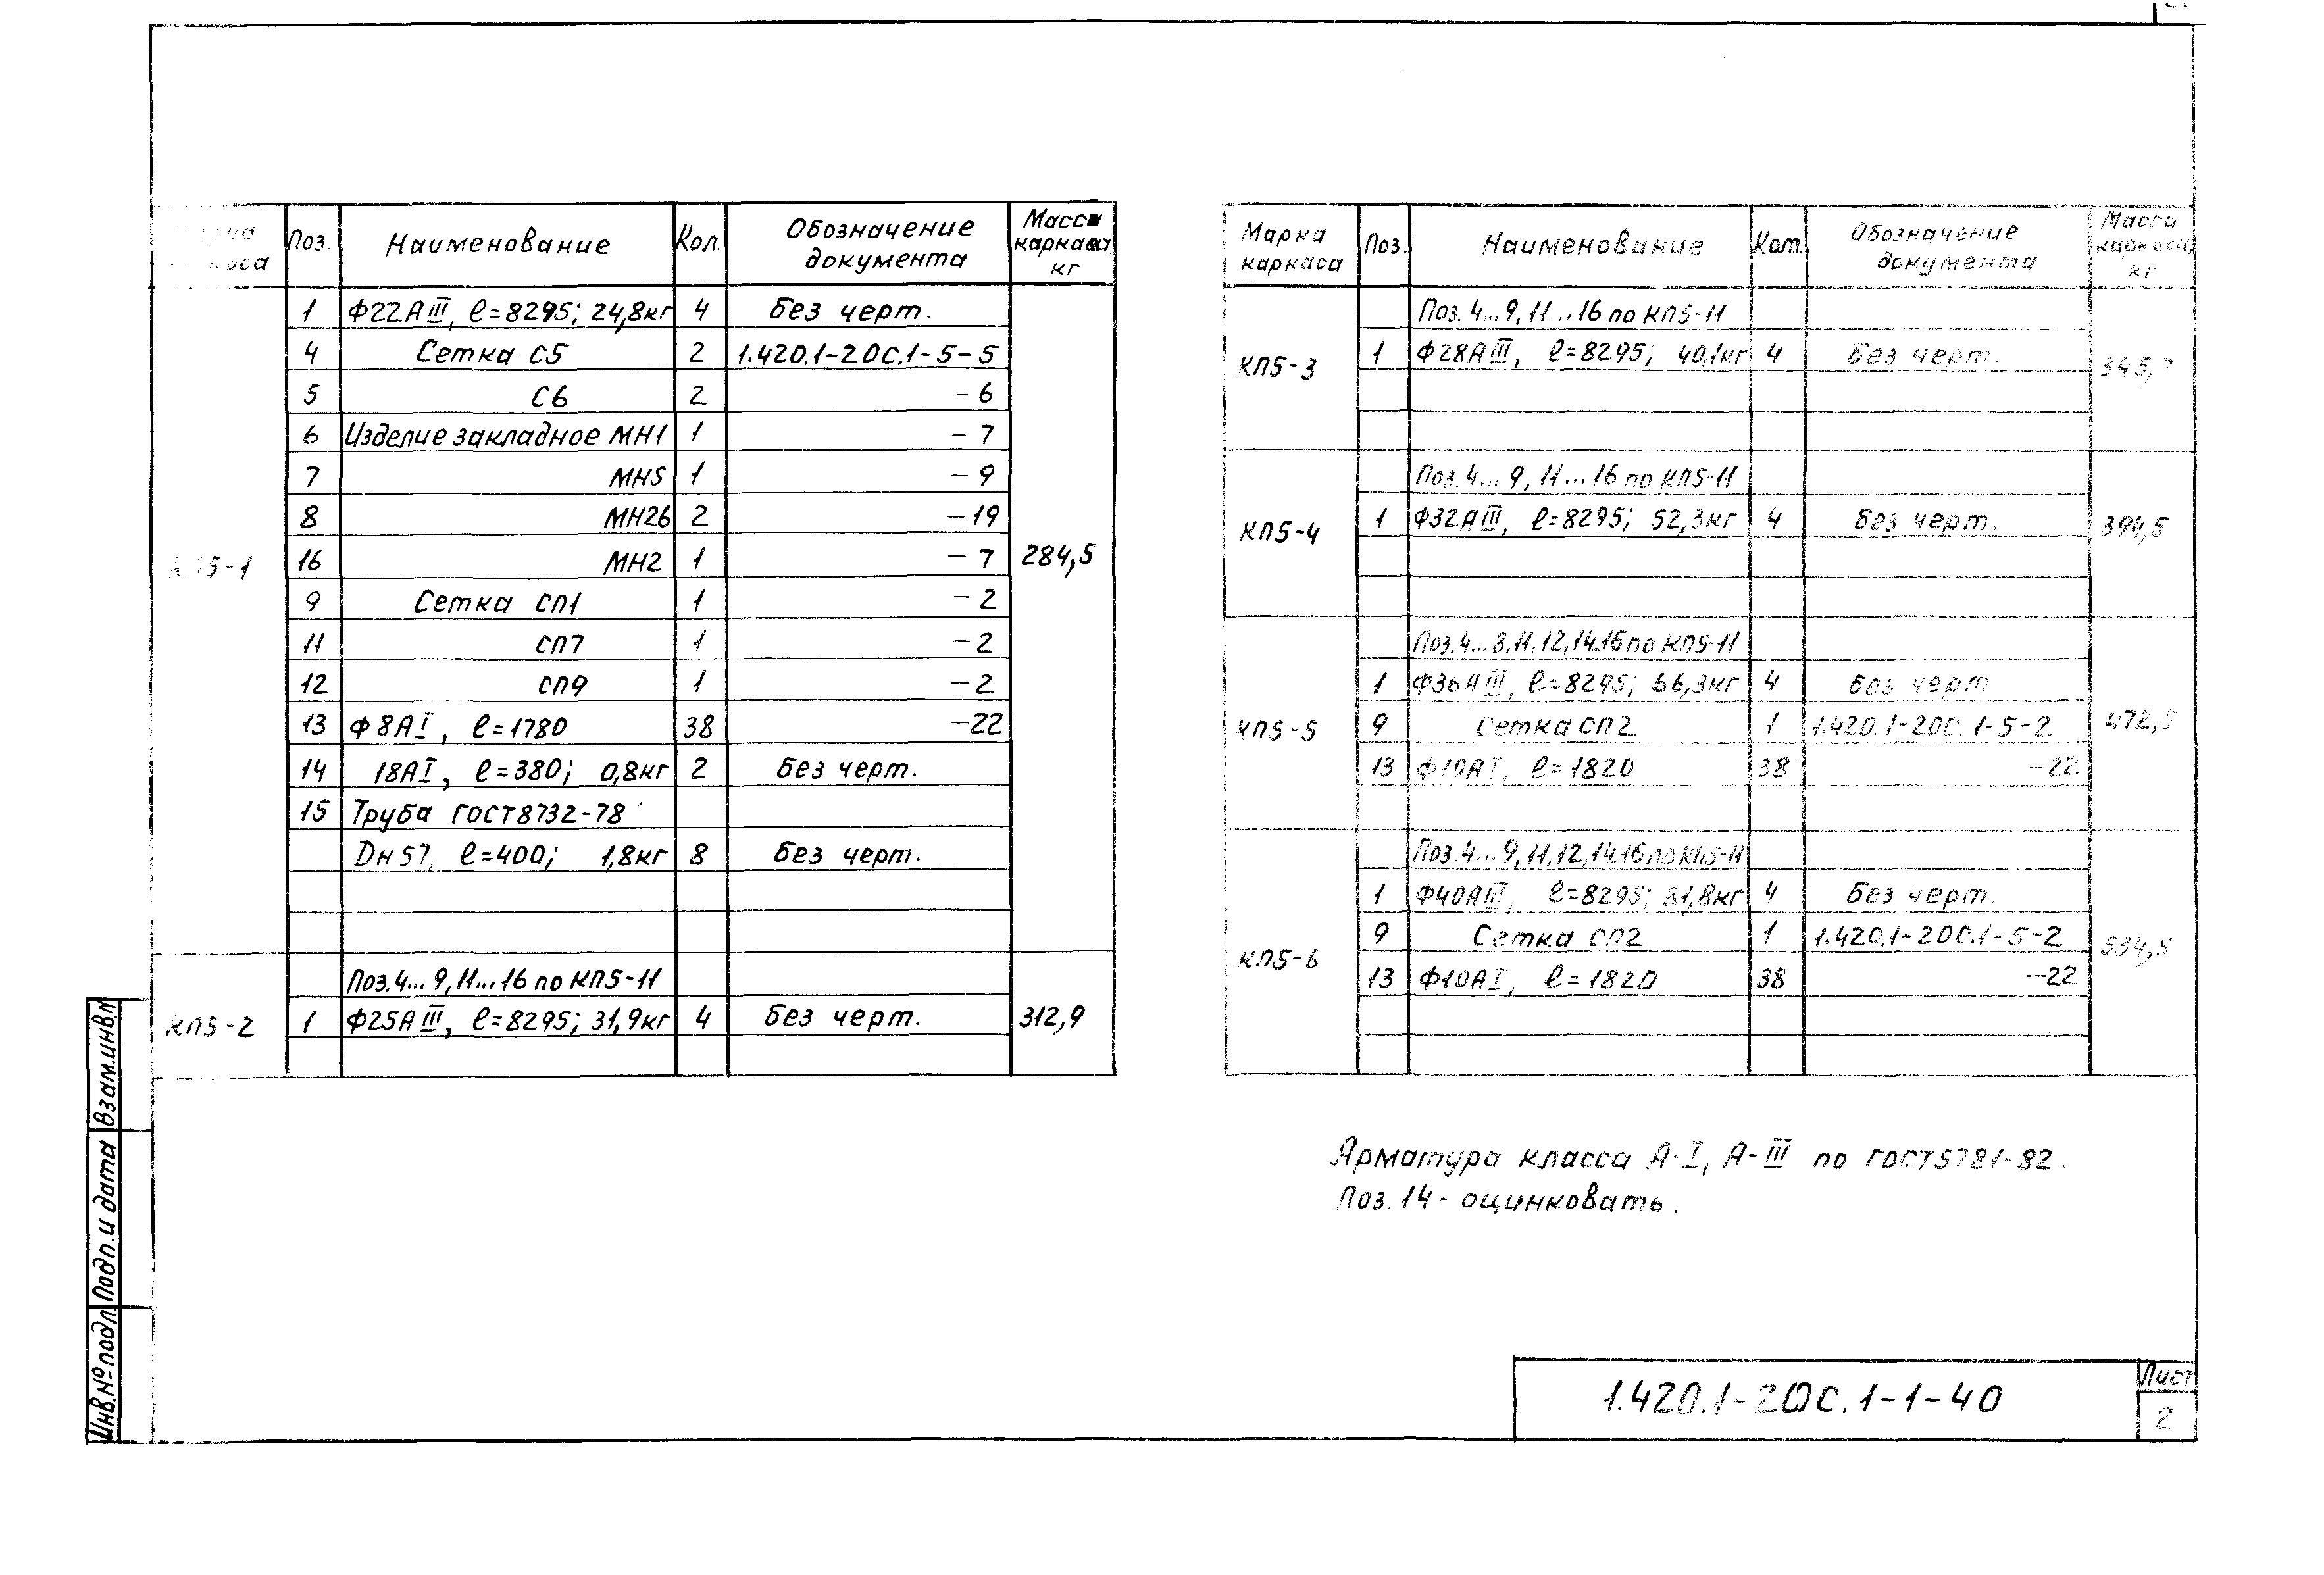 Марка каркаса Поз. Наименование Кол. Обозначение документа Масса каркаса, кг
КП5-1
1 Ф22АIII, ℓ=8295; 24,8кг 4 без черт.
4 Сетка С5 2 1.420.1-20С.1-5-5
5 С6 2 -6
6 Изделие закладное МН1 1 -7
7 МН5 1 -9
8 МН26 2 -19
16 МН2 1 -7
284,5
9 Сетка СП1 1 -2
11 СП7 1 -2
12 СП9 1 -2
13 Ф8АI, ℓ=1780 38 -22
14 18АI, ℓ=380; 0,8кг 2 без черт.
15 Труба ГОСТ8732-78
Dн57, ℓ=400; 1,8кг 8 без черт.
Поз.4...9,11...16 по КП5-11
КП5-2 1 Ф25АIII, ℓ=8295; 31,9кг 4 без черт. 312,9
Марка каркаса Поз. Наименование Кол. Обозначение документа Масса каркаса, кг
Поз.4...9,11...16 по КП5-11
КП5-3 1 Ф28АIII, ℓ=8295; 40,1кг 4 без черт.
Поз.4...9,11...16 по КП5-11
КП5-4 1 Ф32АIII, ℓ=8295; 52,3кг 4 без черт. 394,5
Поз.4...8,11,12,14..16 по КП5-11
1 Ф36АIII, ℓ=8295; 66,3кг 4 без черт
КП5-5 9 Сетка СП2 1 1.420.1-20С.1-5-2 472,5
13 Ф10АI, ℓ=1820 38 -22
Поз.4...9,11,12,14..16 по КП5-11
1 Ф40АIII, ℓ=8295; 81,8кг 4 без черт.
КП5-6 9 Сетка СП2 1 1.420.1-20С.1-5-2 534,5
13 Ф10АI, ℓ=1820 38 -22
Арматура класса А-I, А-III по ГОСТ5781-82.
Поз.14- оцинковать.
1.420.1-20С.1-1-40
Лист
2
Взам.инв.№
Подп. и дата
Инв.№ подл.